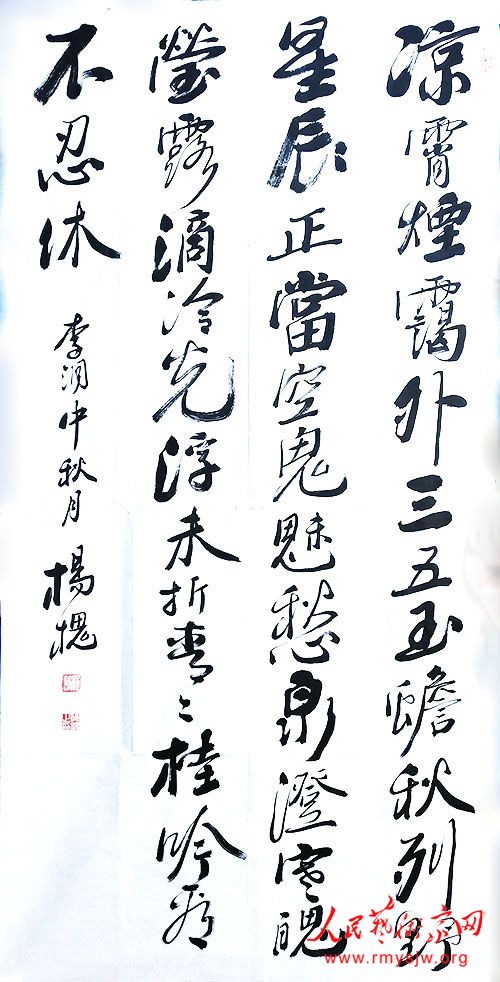 涼霄煙靄外三五玉蟾秋列野
星辰正當空鬼魅愁泉澄寒魄
瑩露滴冷光浮未折青〻桂吟看
不忍休
李洞中秋月 楊槐
人民藝術网
www.rmysjw.org